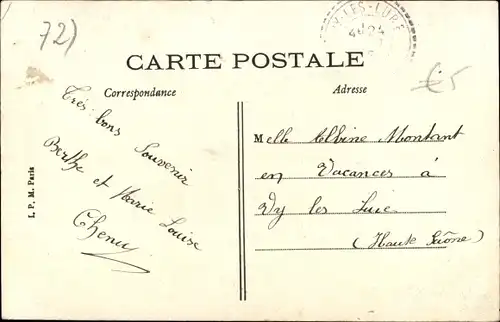 72)
Y-LES-LURE
CARTE POSTALE
€5
Correspondance
Adresse
Très bons Souvenir
Berthe et Marie Louise
Melle Albine Montant
en Vacances à
Vy les Lure
(Haute Saône)
I. P. M. Paris